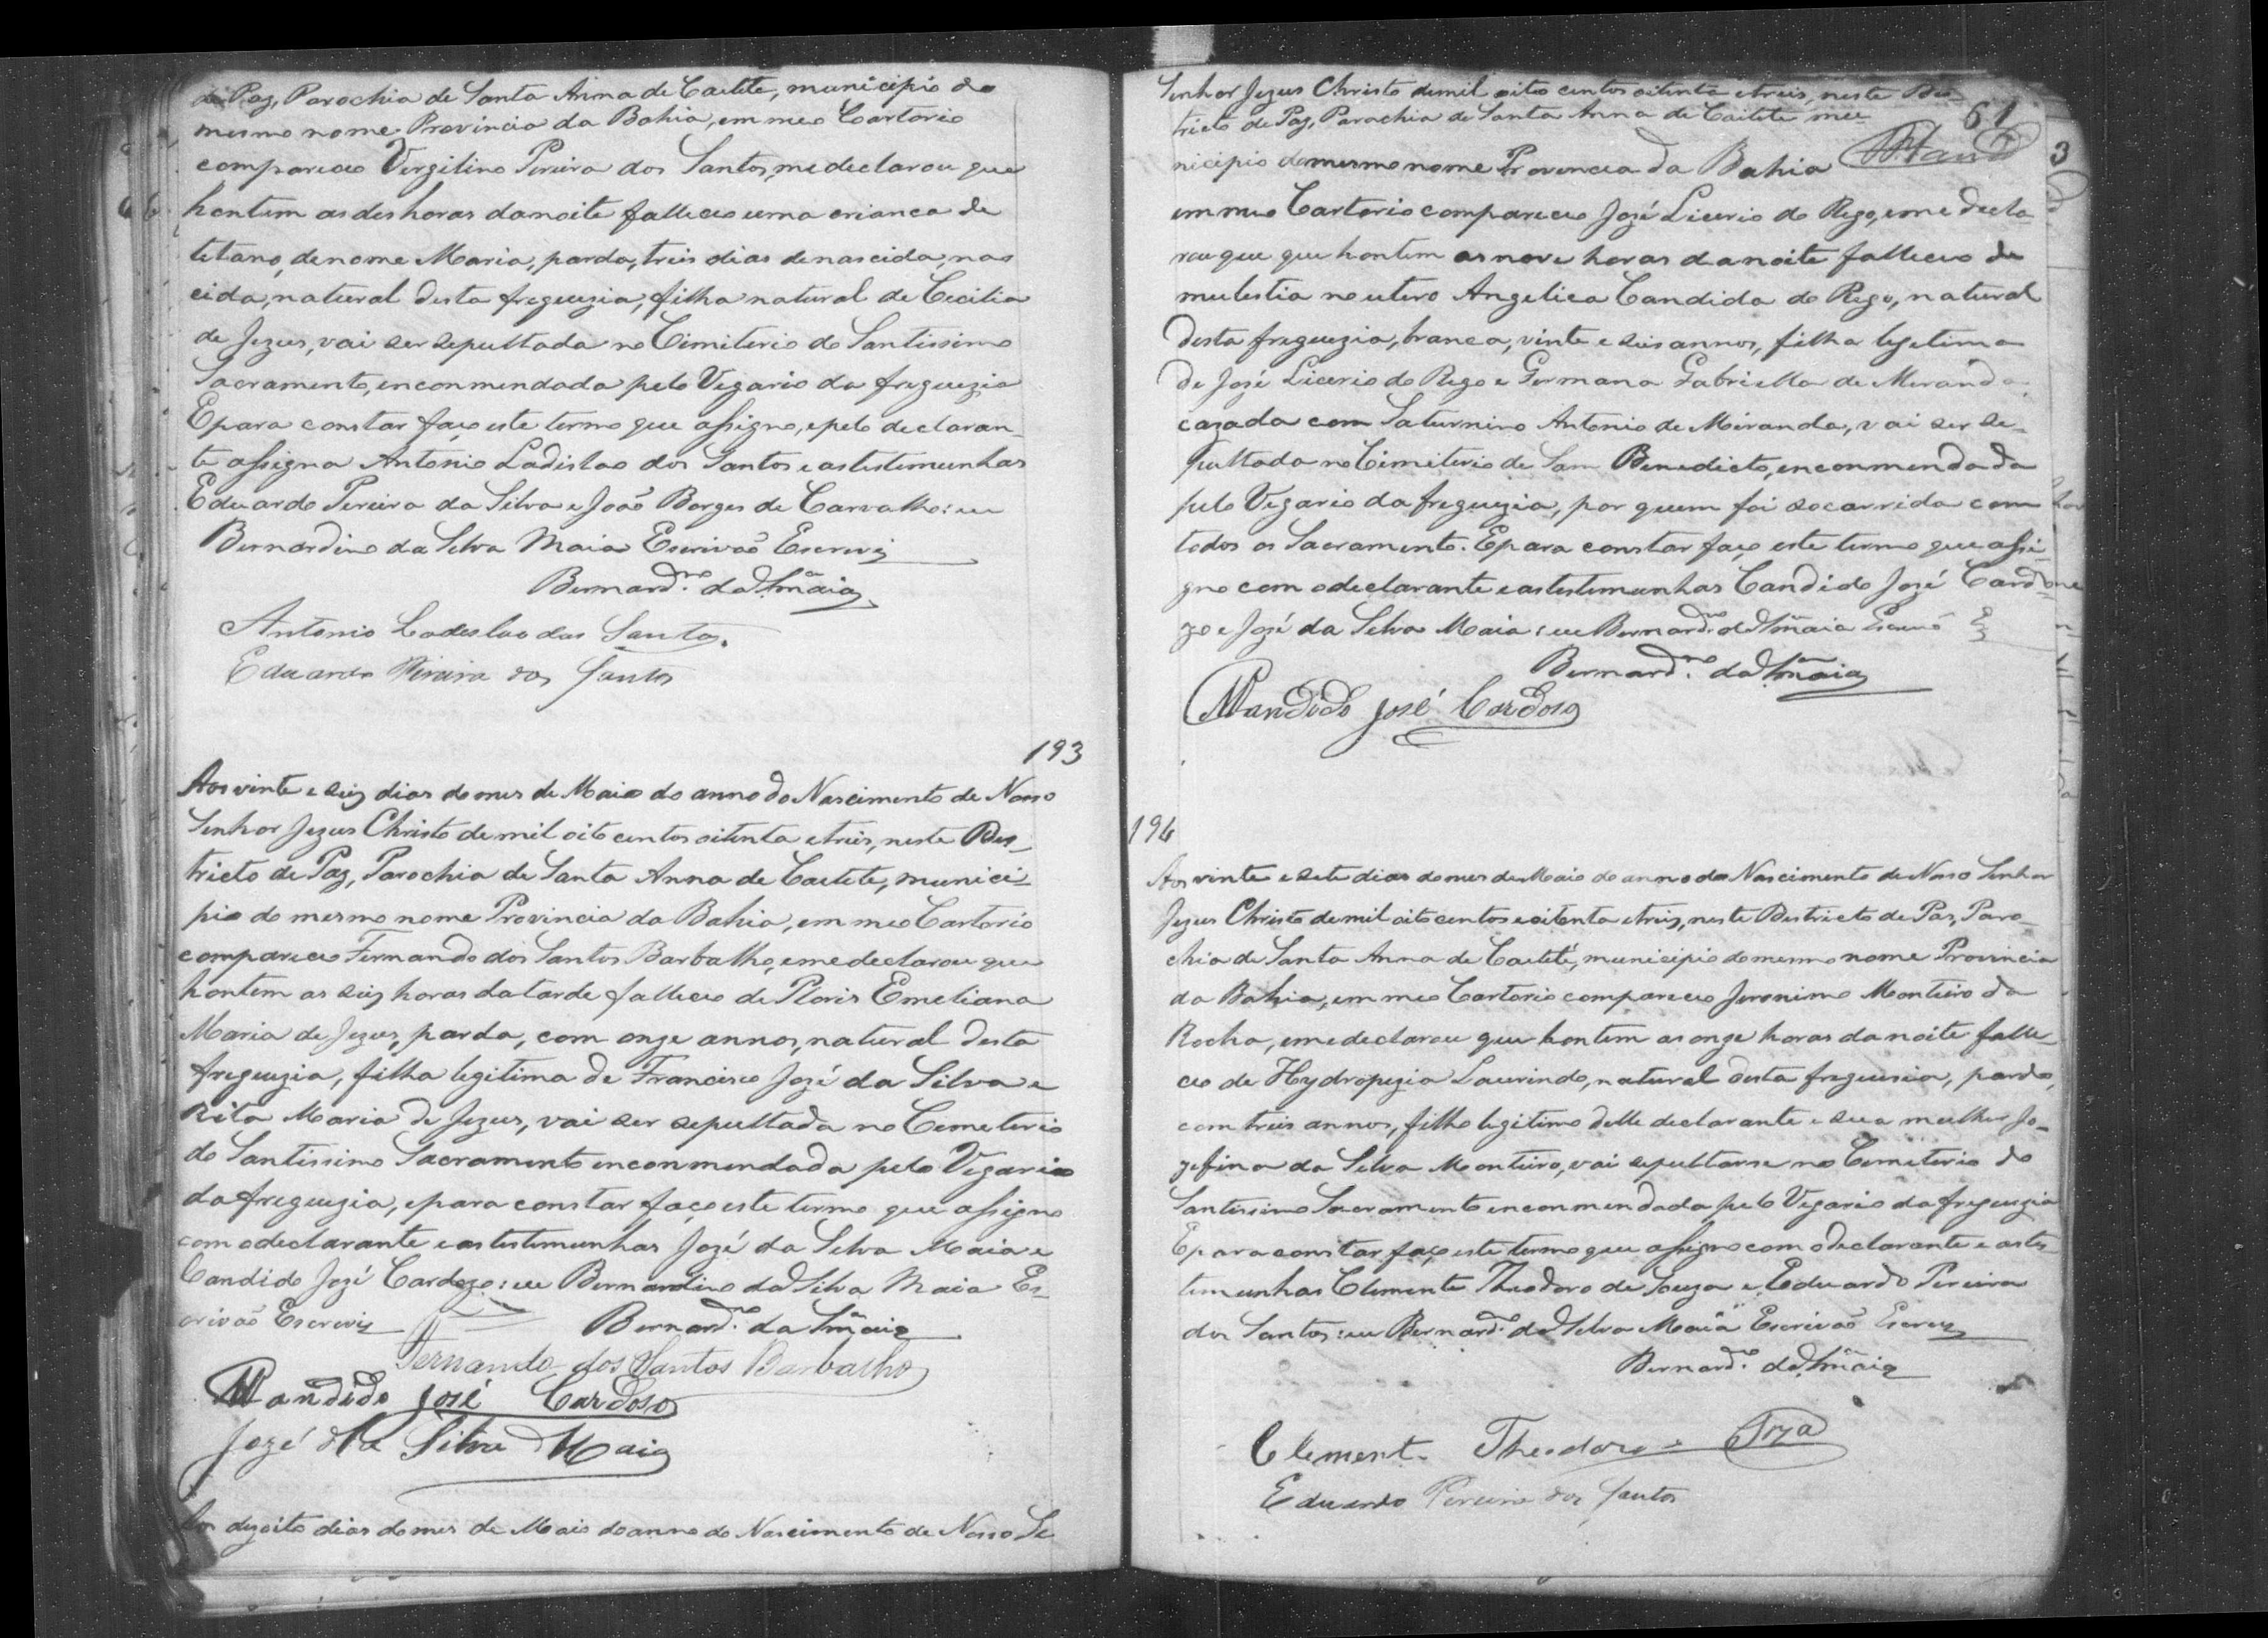 de Paz, Parochia de Santa Anna de Caetite, municipio do
mesmo nome Provincia da Bahia, em meo Cartorio
compareceo Vergilino Pereira dos Santos, me declarou que
hontem as des horas da noite falleceo uma crianca de
tetano, de nome Maria, parda, tres dias de nascida, nas
cida, natural desta freguezia, filha natural de Cecilia
de Jezus, vai ser sepultada no Cimiterio do Santissimo
Sacramento, enconmendada pelo Vegario da freguezia
E para constar faço este termo que assigno, e pelo declaran_
te assigna Antonio Ladislao dos Santos e as testemunhas
Eduardo Pereira da Silva e João Borges de Carvalho: eu
Bernardino da Silva Maia Escrivaõ Escrevi
Bernard.no da S.a Maia
Antonio Ladeslao dos Santos.
Eduardo Pereira dos Santos
193
Aos vinte e seis dias do mes de Maio do anno do Nascimento de Nosso
Senhor Jezus Christo de mil oito centos oitenta e treis, neste Des_
tricto de Paz, Parochia de Santa Anna de Caetete, munici_
pio do mesmo nome Provincia da Bahia, em meo Cartorio
compareceo Fernando dos Santos Barbalho, e me declarou que
hontem as seis horas da tarde falleceo de Ploris Emeliana
Maria de Jezus, parda, com onze annos, natural desta
freguezia, filha legitima de Francisco José da Silva e
Rita Maria de Jezus, vai ser sepultada no Cemeterio
do Santissimo Sacramento enconmendada pelo Vegario
da freguezia, e para constar faço este termo que assigno
com o declarante e as testemunhas Jozé da Selva Maia e
Candido Jozé Cardozo: eu Bernardino da Silva Maia Es_
crivaõ Escrevi
Bernard.no da S.a Maia
Fernando dos Santos Barbalho
Candido José Cardoso
Jozé da Silva Maia
Aos dezoito dias do mes de Maio do anno do Nascimento de Nosso Se
Senhor Jezus Christo de mil oito centos oitenta e treis, neste Des_
tricto de Paz, Parachia de Santa Anna de Caitete mu_
61
nicipio do mesmo nome Provencea da Bahia
3
em meo Cartorio compareceo Jozé Licerio do Rego, e me decla_
rou que que hontem as nove horas da noite falleceo de
mulestia no utero Angelica Candida do Rego, natural
desta freguezia, branca, vinte e seis annos, filha legetima
de José Licerio do Rego e Germana Gabriella de Meranda
cazada com Saturnino Antonio de Miranda, vai ser se_
pultada no Cimiterio de Sam Benedicto, enconmendada
pelo Vegario da freguezia, por quem foi socarrida com
todos os Sacramento. E para constar faço este termo que assi_
gno com o declarante e as testemunhas Candido José Card
zo e Jozé da Selva Maia: eu Bernard.no da S.a Maia
Bernard.no da S.a Maia
Candido José Cardoso
194
Aos vinte e sete dias do mes de Maio do anno do Nascimento de Nosso Senhor
Jezus Christo de mil oito centos e oitenta e treis, neste Destricto de Paz, Paro_
chia de Santa Anna de Caetité, municipio do mesmo nome Provincia
da Bahia, em meo Cartorio compareceo Jeronimo Monteiro da
Rocha, e me declarou que hontem as onze horas da noite falle_
ceo de Hydropezia Laurindo, natural desta freguesia, pardo,
com treis annos, filho legitimo delle declarante e sua mulher Jo_
zefina da Selva Monteiro, vai sepultarse no Cemiterio do
Santissimo Sacramento enconmendada pelo Vegario da freguezia
E para constar faço este termo que assigno com o declarante e as tes_
temunhas Clemente Theodoro de Souza e Eduardo Pereira
dos Santos: eu Bernard.o da Selva Maia Escrivaõ Escrevi
Bernard.o da S.a Maia
Clement. Theodoro Sza
Eduardo Pereira dos Santos